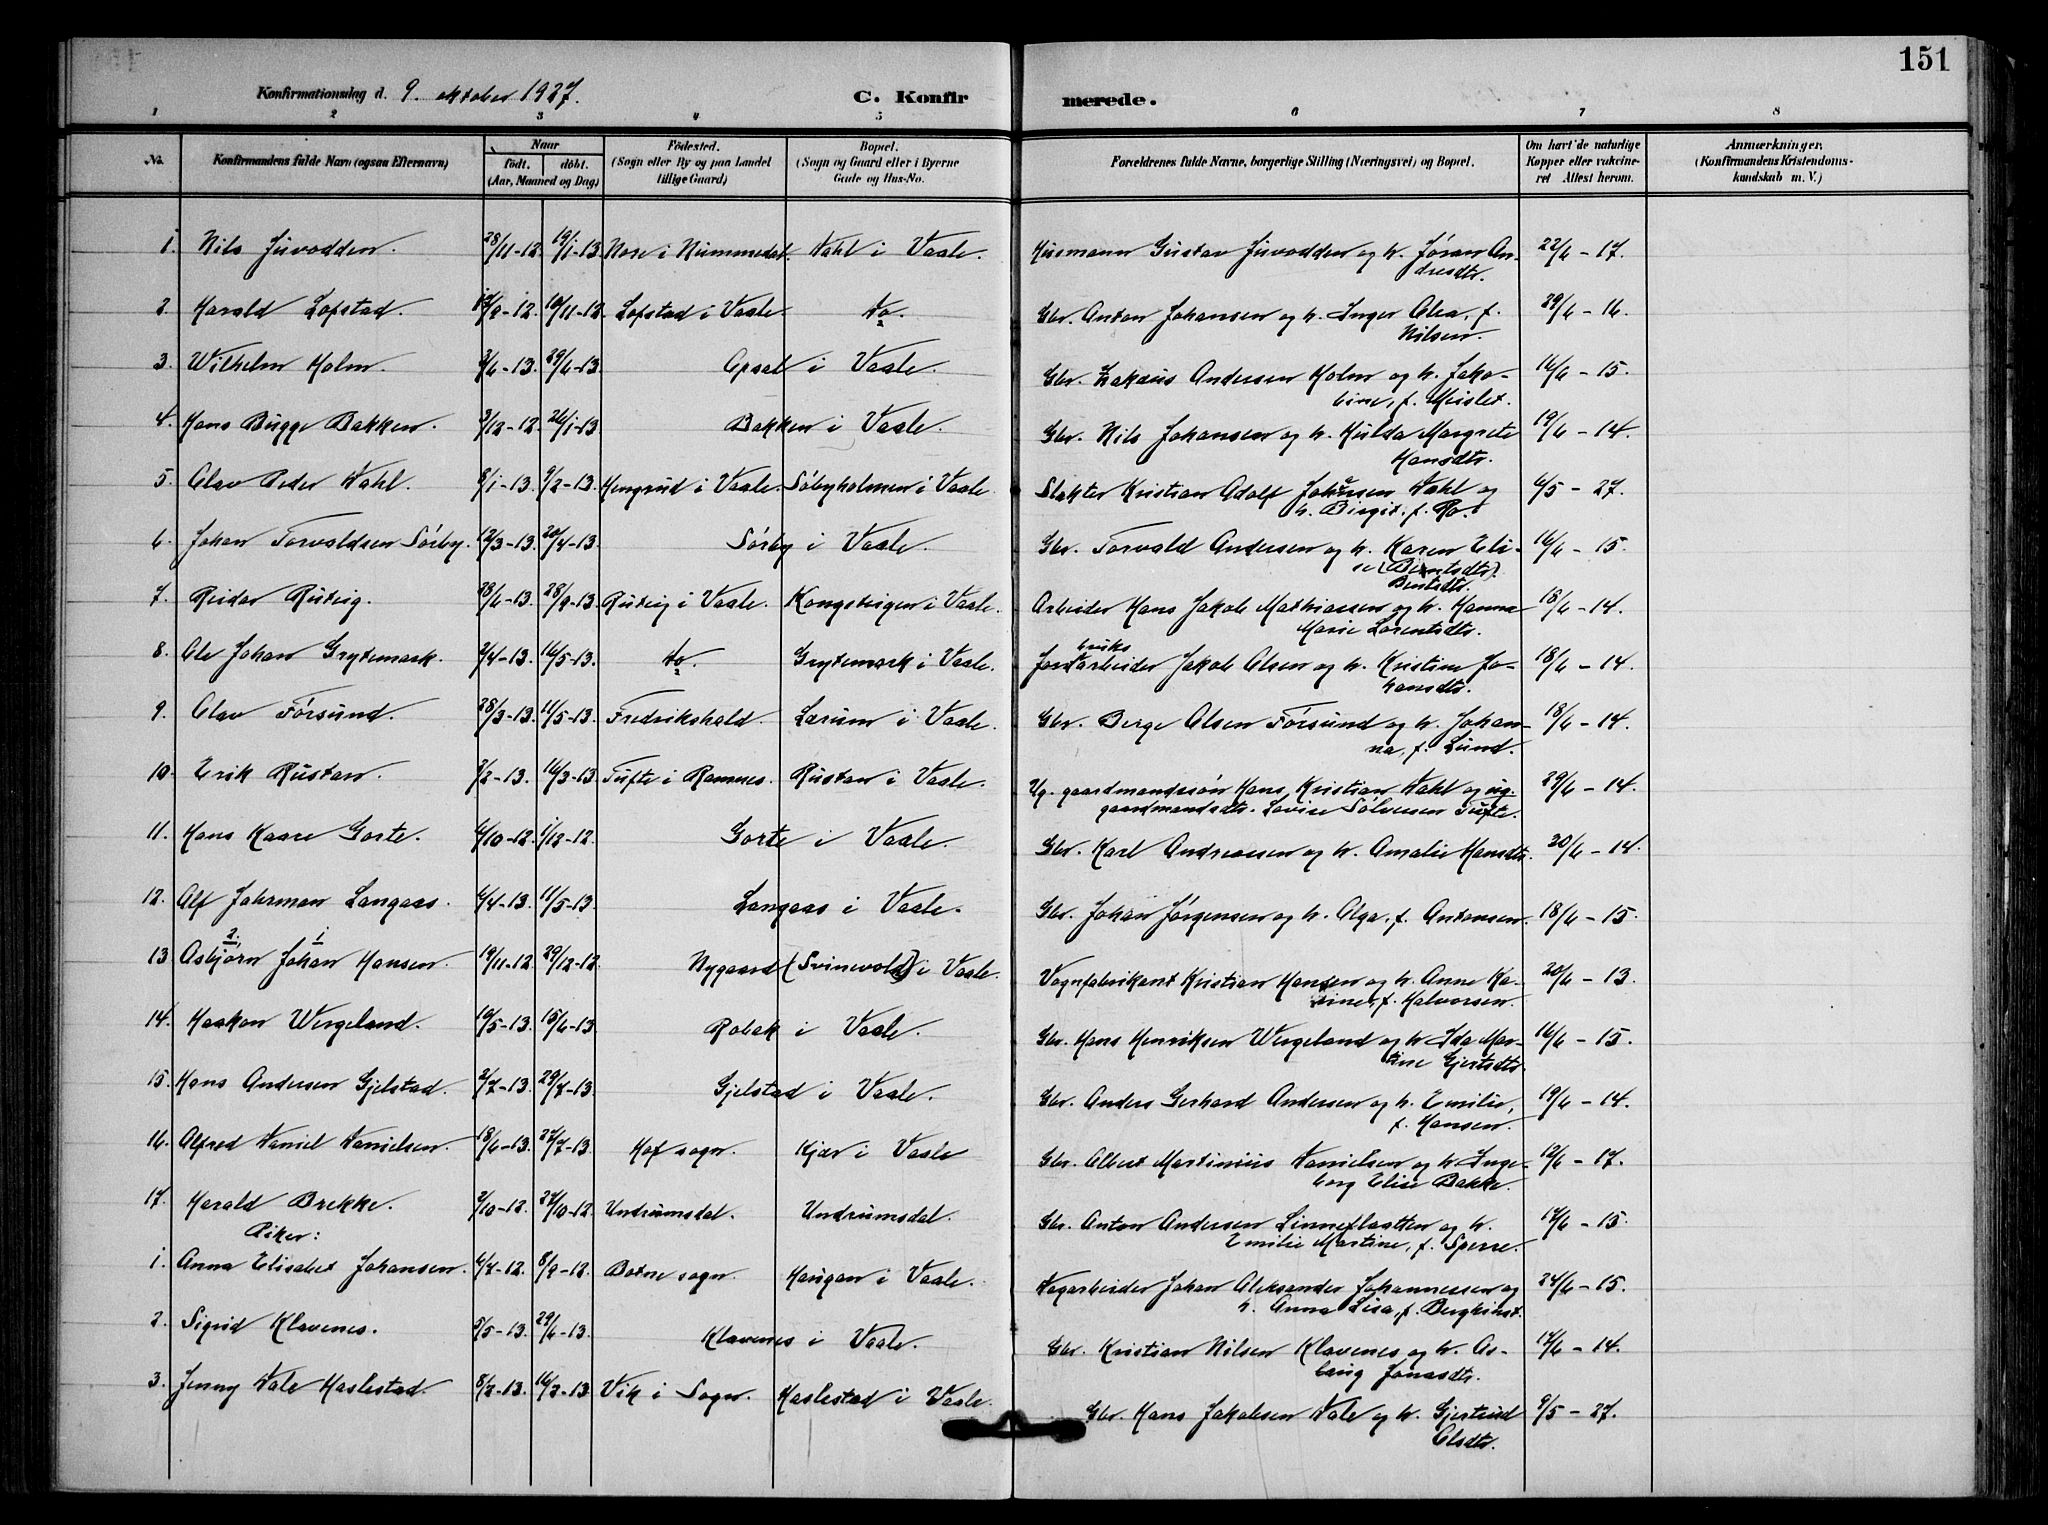 151
Konfirmationsdag d. 9. oktober 1927. C. Konfir merede.
1 2 3 4 5 6 7 8
No. Konfirmandens fulde Navn (ogsaa Efternavn) Naar födt. döbt. (Aar, Maaned og Dag) Födested. (Sogn eller By og paa Landet tillige Gaard) Bopæl. (Sogn og Gaard eller i Byerne Gade og Hus-No. Forældrenes fulde Navne, borgerlige Stilling (Næringsvei) og Bopæl. Om havt de naturlige Kopper eller vakcineret Attest herom. Anmærkninger. (Konfirmandens Kristendomskundskab m. V.)
1. Nils Juvodden. 28/11-12. 19/1-13. Nore i Nummedal. Dahl i Vaale. Husmann Gustav Juvodden og h. Jøran An- 22/6-17.
dresdtr.
2. Harald Lofstad. /9-12. 10/11-12. Lofstad i Vaale. Do. Gbr. Anton Johansen og h. Inger Olea, f. 29/6-16.
Nilsen.
3. Wilhelm Holm. 2/6-13. 29/6-13. Opsal i Vaale. Gbr. Zakæus Andersen Holm og h. Jako- 16/6-15.
bine, f. Meislet.
4. Hans Bugge Bakken. 3/12-12. 26/1-13. Bakken i Vaale. Gbr. Nils Johansen og h. Hulda Margrete 19/6-14.
Hansdtr.
5. Olav Peder Dahl. 8/1-13. 9/2-13. Hengsrud i Vaale. Söbyholmen i Vaale. Slakter Kristian Adolf Johansen Dahl og 4/5-27.
h. Birgit, f. Ro.
6. Johan Torvaldsen Sörby. 12/3-13. 20/4-13. Sörby i Vaale. Gbr. Torvald Andersen og h. Karen Eli- 16/6-15.
se (Berntsdtr).
Bentsdtr.
7. Reidar Rutvig. 28/6-13. 28/9-13. Rutvig i Vaale. Kongsteigen i Vaale. Arbeider Hans Jakob Mathiassen og h. Hanna 18/6-14.
Marie Lorentsdtr.
8. Ole Johan Grytemark. 2/4-13. 16/5-13. Do. Grytemark i Vaale. Jordbruksarbeider Jakob Olsen og h. Kristine Jo- 18/6-14.
hansdtr.
9. Olav Försund. 28/3-13. 11/5-13. Fredrikshald. Lærum i Vaale. Gbr. Berge Olsen Försund og h. Johan- 18/6-14.
na, f. Lund.
10. Erik Rustan. 2/2-13. 16/3-13. Tufte i Ramnes. Rustan i Vaale. Ug. gaardmandssön Hans Kristian Dahl og ug. 29/6-14.
gaardmandsdtr. Lovise Sölvesen Tufte.
11. Hans Kaare Gorte. 4/10-12. 1/12-12. Gorte i Vaale. Gbr. Karl Andreassen og h. Amalie Hansdtr. 20/6-14.
12. Alf Jahrman Langaas. 4/4-13. 11/5-13. Langaas i Vaale. Gbr. Johan Jörgensen og h. Olga, f. Antonsen. 18/6-15.
2. 1
13. Asbjörn Johan Hansen. 19/11-12. 29/12-12. Nygaard (Svinevold) i Vaale. Vognfabrikant Kristian Hansen og h. Anne Ka- 20/6-13.
rine, f. Halvorsen.
14. Haakon Wergeland. 10/5-13. 15/6-13. Robak i Vaale. Gbr. Hans Henriksen Wergeland og h. Ida Mar- 16/6-15.
tine Gjertsdtr.
15. Hans Andersen Gjelstad. 2/7-13. 29/7-13. Gjelstad i Vaale. Gbr. Anders Gerhard Andersen og h. Emilie, 19/6-14.
f. Hansen.
16. Alfred Daniel Danielsen. 18/6-13. 27/7-13. Hof sogn. Kjær i Vaale Gbr. Albert Martinius Danielsen og h. Inge- 12/6-17.
borg Elise Bakke.
17. Harald Brekke. 2/10-12. 27/10-12. Undrumsdal. Undrumsdal. Gbr. Anton Andersen Linneflaatten og h. 17/6-15.
Emilie Martine, f. Sperre.
Piker:
1. Anna Elisabet Johansen. 4/7-12. 8/9-12. Botne sogn. Haugan i Vaale. Dagarbeider Johan Aleksander Johannessen og 24/6-15.
h. Anna Lisa, f. Bergkvist.
2. Sigrid Klavenes. 3/5-13. 29/6-13. Klavenes i Vaale. Gbr. Kristian Nilsen Klavenes og h. As- 17/6-14.
laug Jonasdtr.
3. Jenny Dale Haslestad. 8/2-13. 16/3-13. Vik i Sogn. Haslestad i Vaale. Gbr. Hans Jakobsen Dale og h. Gjertrud 9/5-27.
Olsdtr.